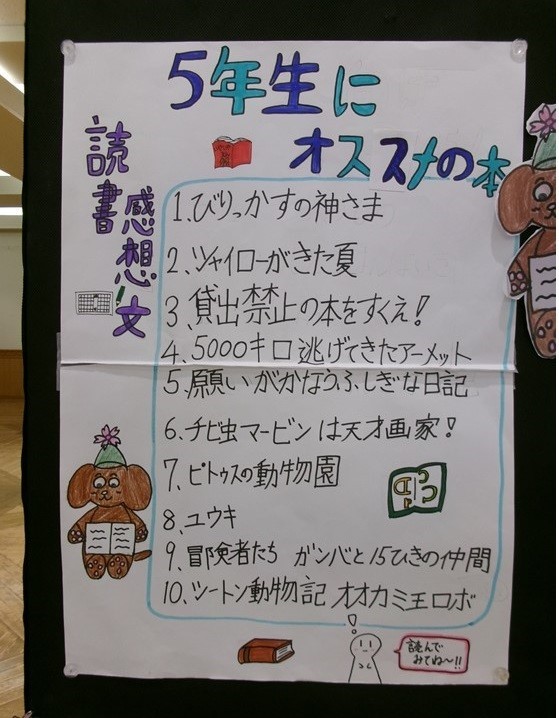 5年生に
オススメの本
読書感想文
1.びりっかすの神さま
2.シャイローがきた夏
3.貸出禁止の本をすくえ!
4.5000キロ逃げてきたアーメット
5.願いがかなうふしぎな日記
6.チビ虫マービンは天才画家!
7.ピトゥスの動物園
8.ユウキ
9.冒険者たち ガンバと15ひきの仲間
10.シートン動物記 オオカミ王ロボ
読んで
みてね〜!!